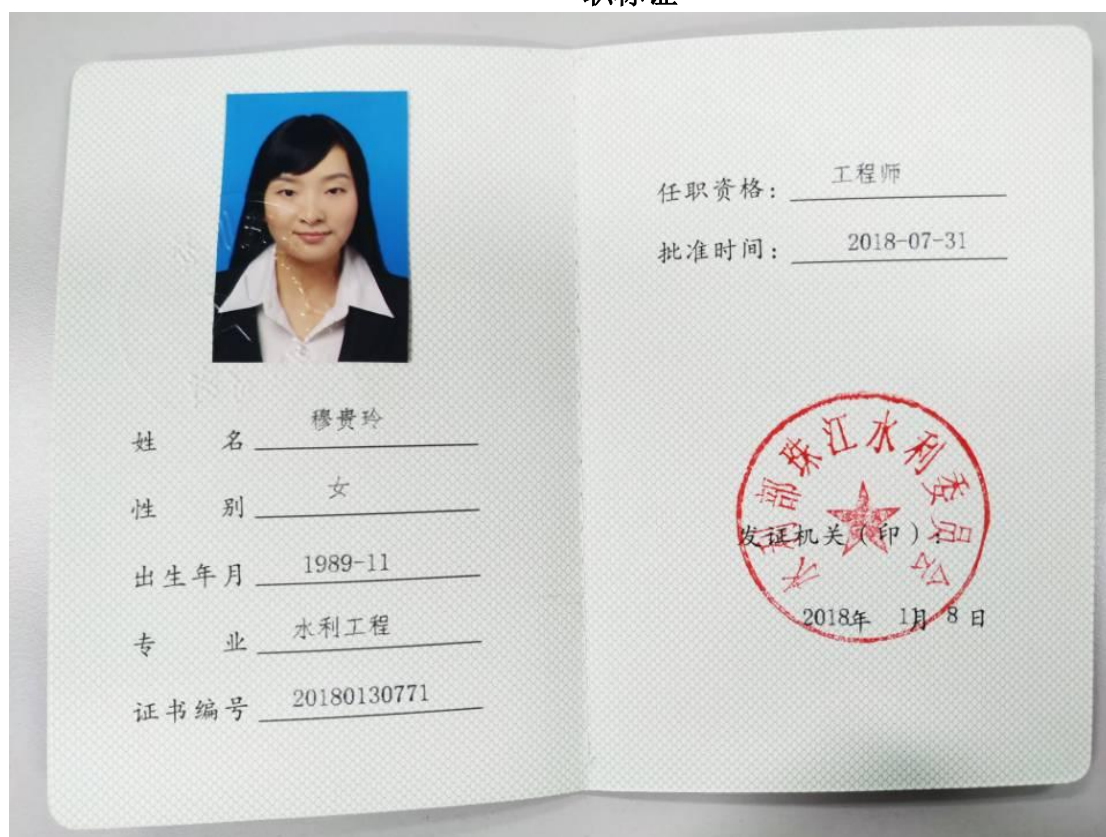 职称证
姓 名 穆贵玲
性 别 女
出生年月 1989-11
专 业 水利工程
证书编号 20180130771
任职资格: 工程师
批准时间: 2018-07-31
水利部珠江水利委员会
发证机关(印):
2018年 1月 8日